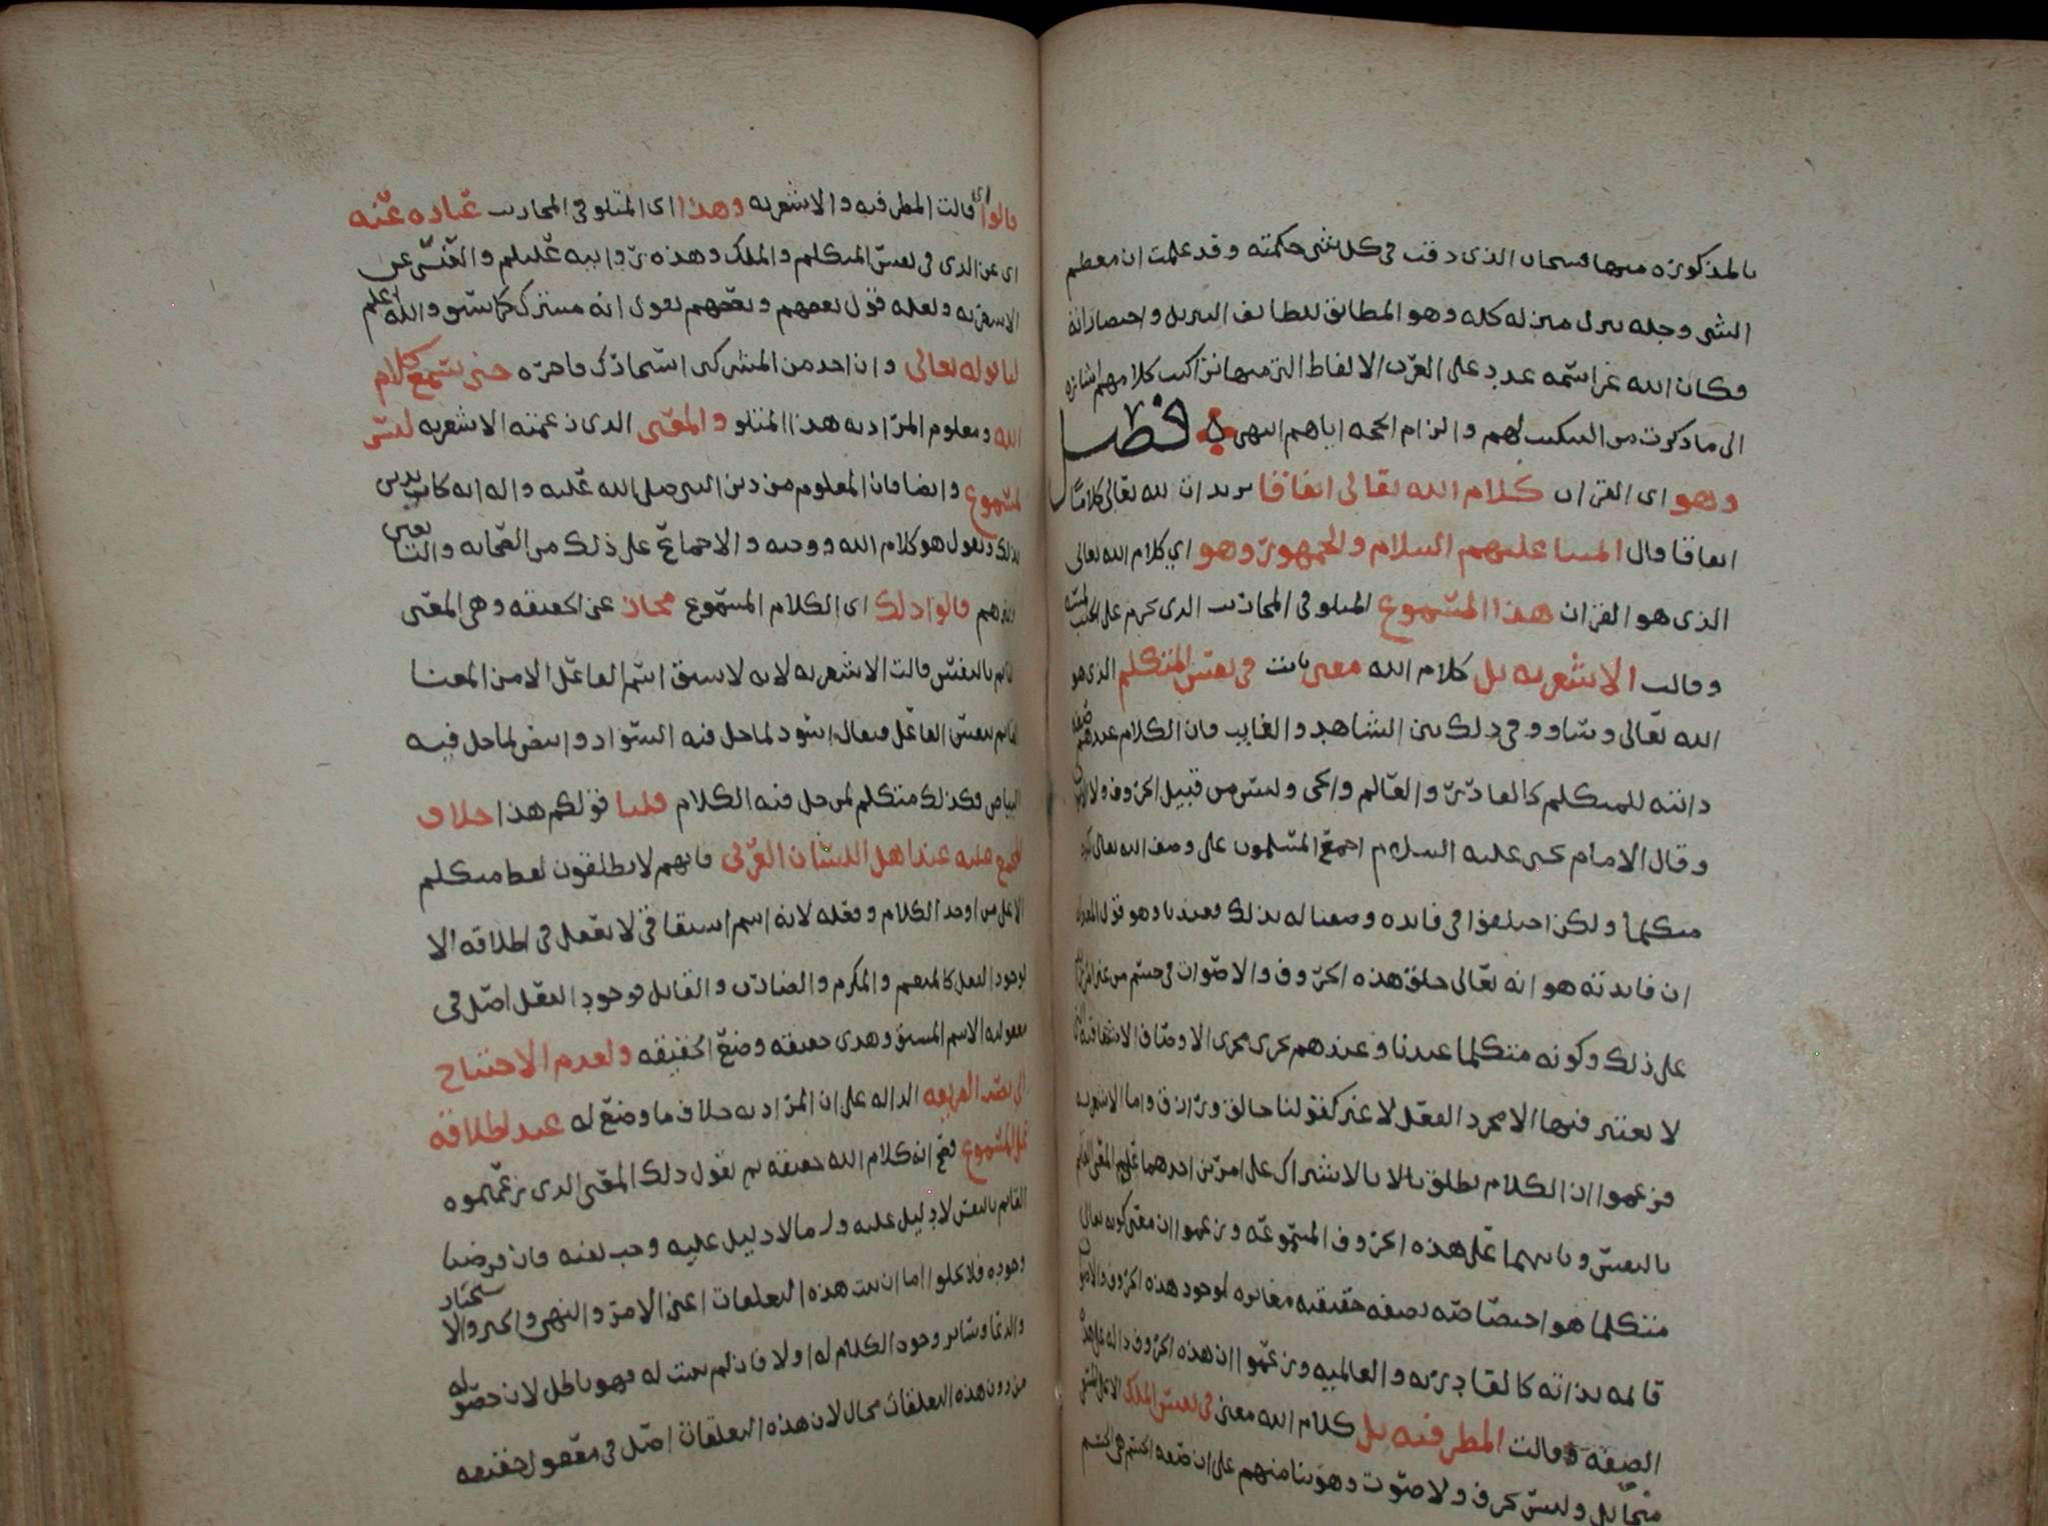 بالمذكورة منها فسبحان الذي دقت في كل شي حكمته وقد علمت ان معظم
الشي وجله ينزل منزلة كله وهو المطابق للطايف التنزيل واختصاراته
فكان الله عز اسمه عدد على العرب الالفاظ التي منها تراكيب كلامهم اشارة
الى ما ذكرت من التبكيت لهم والزام الحجه اياهم انتهى فصل
وهو اى القران كلام الله تعالى اتفاقا يريد ان لله تعالى كلاما
اتفاقا قال ايمتنا عليهم السلام والجمهور وهو اي كلام الله تعالى
الذى هو القران هذا المسموع المتلو فى المحاريب الذى يحرم على الجنب لمسه
وقالت الاشعريه بل كلام الله معنى ثابت فى نفس المتكلم الذى هو
الله تعالى وساووا فى ذلك بين الشاهد والغايب فان الكلام عندهم صفة
ذاتيه للمتكلم كالقادر والعالم والحى وليس من قبيل الحروف ولا الاصوات
وقال الامام يحيى عليه السلام اجمع المسلمون على وصف الله تعالى بكونه
متكلما ولكن اختلفوا فى فايده وصفنا له بذلك فعندنا وهو قول المعتزلة
ان فايدته هو انه تعالى خلق هذه الحروف والاصوات فى جسم من غير
على ذلك وكونه متكلما عندنا وعندهم يجرى مجرى الاوصاف الاشتقاقيه
لا يعتبر فيها الا مجرد الفعل لا غير كقولنا خالق ورازق واما الاشعريه
فزعموا ان الكلام يطلق بالاشتراك على امرين احدهما على المعنى القايم
بالنفس وثانيهما على هذه الحروف المسموعه وزعموا ان معنى كونه تعالى
متكلما هو اختصاصه بصفه حقيقيه مغايره لوجود هذه الحروف والاصوات
قايمه بذاته كالقادريه والعالميه وزعموا ان هذه الحروف داله على هذه
الصفه وقالت المطرفيه بل كلام الله معنى فى نفس الملك الاعلى
ميخائيل وليس بحرف ولا صوت وهو بنا منهم على ان صفه الجسم هى الجسم
قالوا اى قالت المطرفيه والاشعريه وهذا اى المتلو فى المحاريب عباره عنه
اى عن الذى فى نفس المتكلم والملك وهذه روايه عنهم
الاشعريه ولعله قول بعضهم وبعضهم يقول انه مشترك كما سبق والله اعلم
لنا قوله تعالى وان احد من المشركين استجارك فاجره حتى يسمع كلام
الله ومعلوم المراد به هذا المتلو والمعنى الذى زعمته الاشعريه ليس
بمسموع وايضا فان المعلوم من دين النبى صلى الله عليه واله انه كان يدين
بذلك ويقول هو كلام الله ووحيه والاجماع على ذلك من الصحابه والتابعين
وغيرهم قالوا ذلك اى الكلام المسموع مجاز عن الحقيقه وهى المعنى
القايم بالنفس قالت الاشعريه لانه لا يشتق اسم الفاعل الا من المعنا
القايم بنفس الفاعل فيقال اسود لما حل فيه السواد وابيض لما حل فيه
البياض فكذلك متكلم لمن حل فيه الكلام قلنا قولكم هذا خلاف
المجمع عليه عند اهل اللسان العربى فانهم لا يطلقون لفظ متكلم
الا على من اوجد الكلام وفعله لانه اسم اشتقاقى لا يعقل فى اطلاقه الا
لوجود الفعل كالمنعم والمكرم والضارب والقاتل فوجود الفعل اصل فى
معقوليه الاسم المشتق وهذى حقيقه وضع الحقيقه ولعدم الاحتياج
الى نصب القرينه الداله على ان المراد به خلاف ما وضع له عند اطلاقه
على المسموع فصح انه كلام الله حقيقه ثم نقول ذلك المعنى الذى زعمتموه
القايم بالنفس لا دليل عليه وما لا دليل عليه وجب نفيه فان فرضنا
وجوده فلا يخلوا اما ان تثبت هذه التعلقات اعنى الامر والنهى والخبر والاستخبار
والدعا وساير وجوه الكلام له اولا فان لم يثبت له فهو باطل لان حصوله
من دون هذه التعلقات محال لان هذه التعلقات اصل فى معقول حقيقه